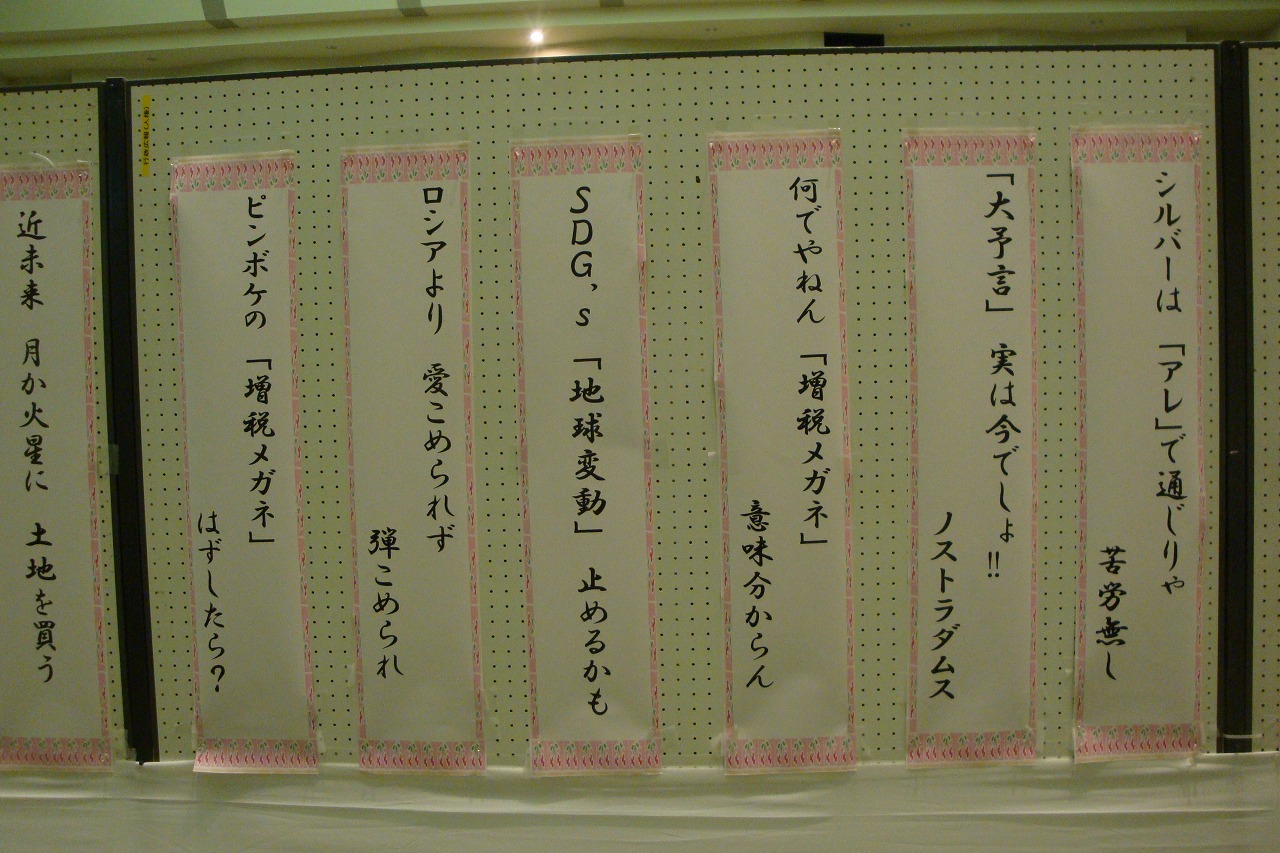 シルバーは「アレ」で通じりゃ
苦労無し
「大予言」 実は今でしょ!!
ノストラダムス
何でやねん「増税メガネ」
意味分からん
SDG,s「地球変動」 止めるかも
ロシアより 愛こめられず
弾こめられ
ピンボケの「増税メガネ」
はずしたら?
近未来 月か火星に 土地を買う